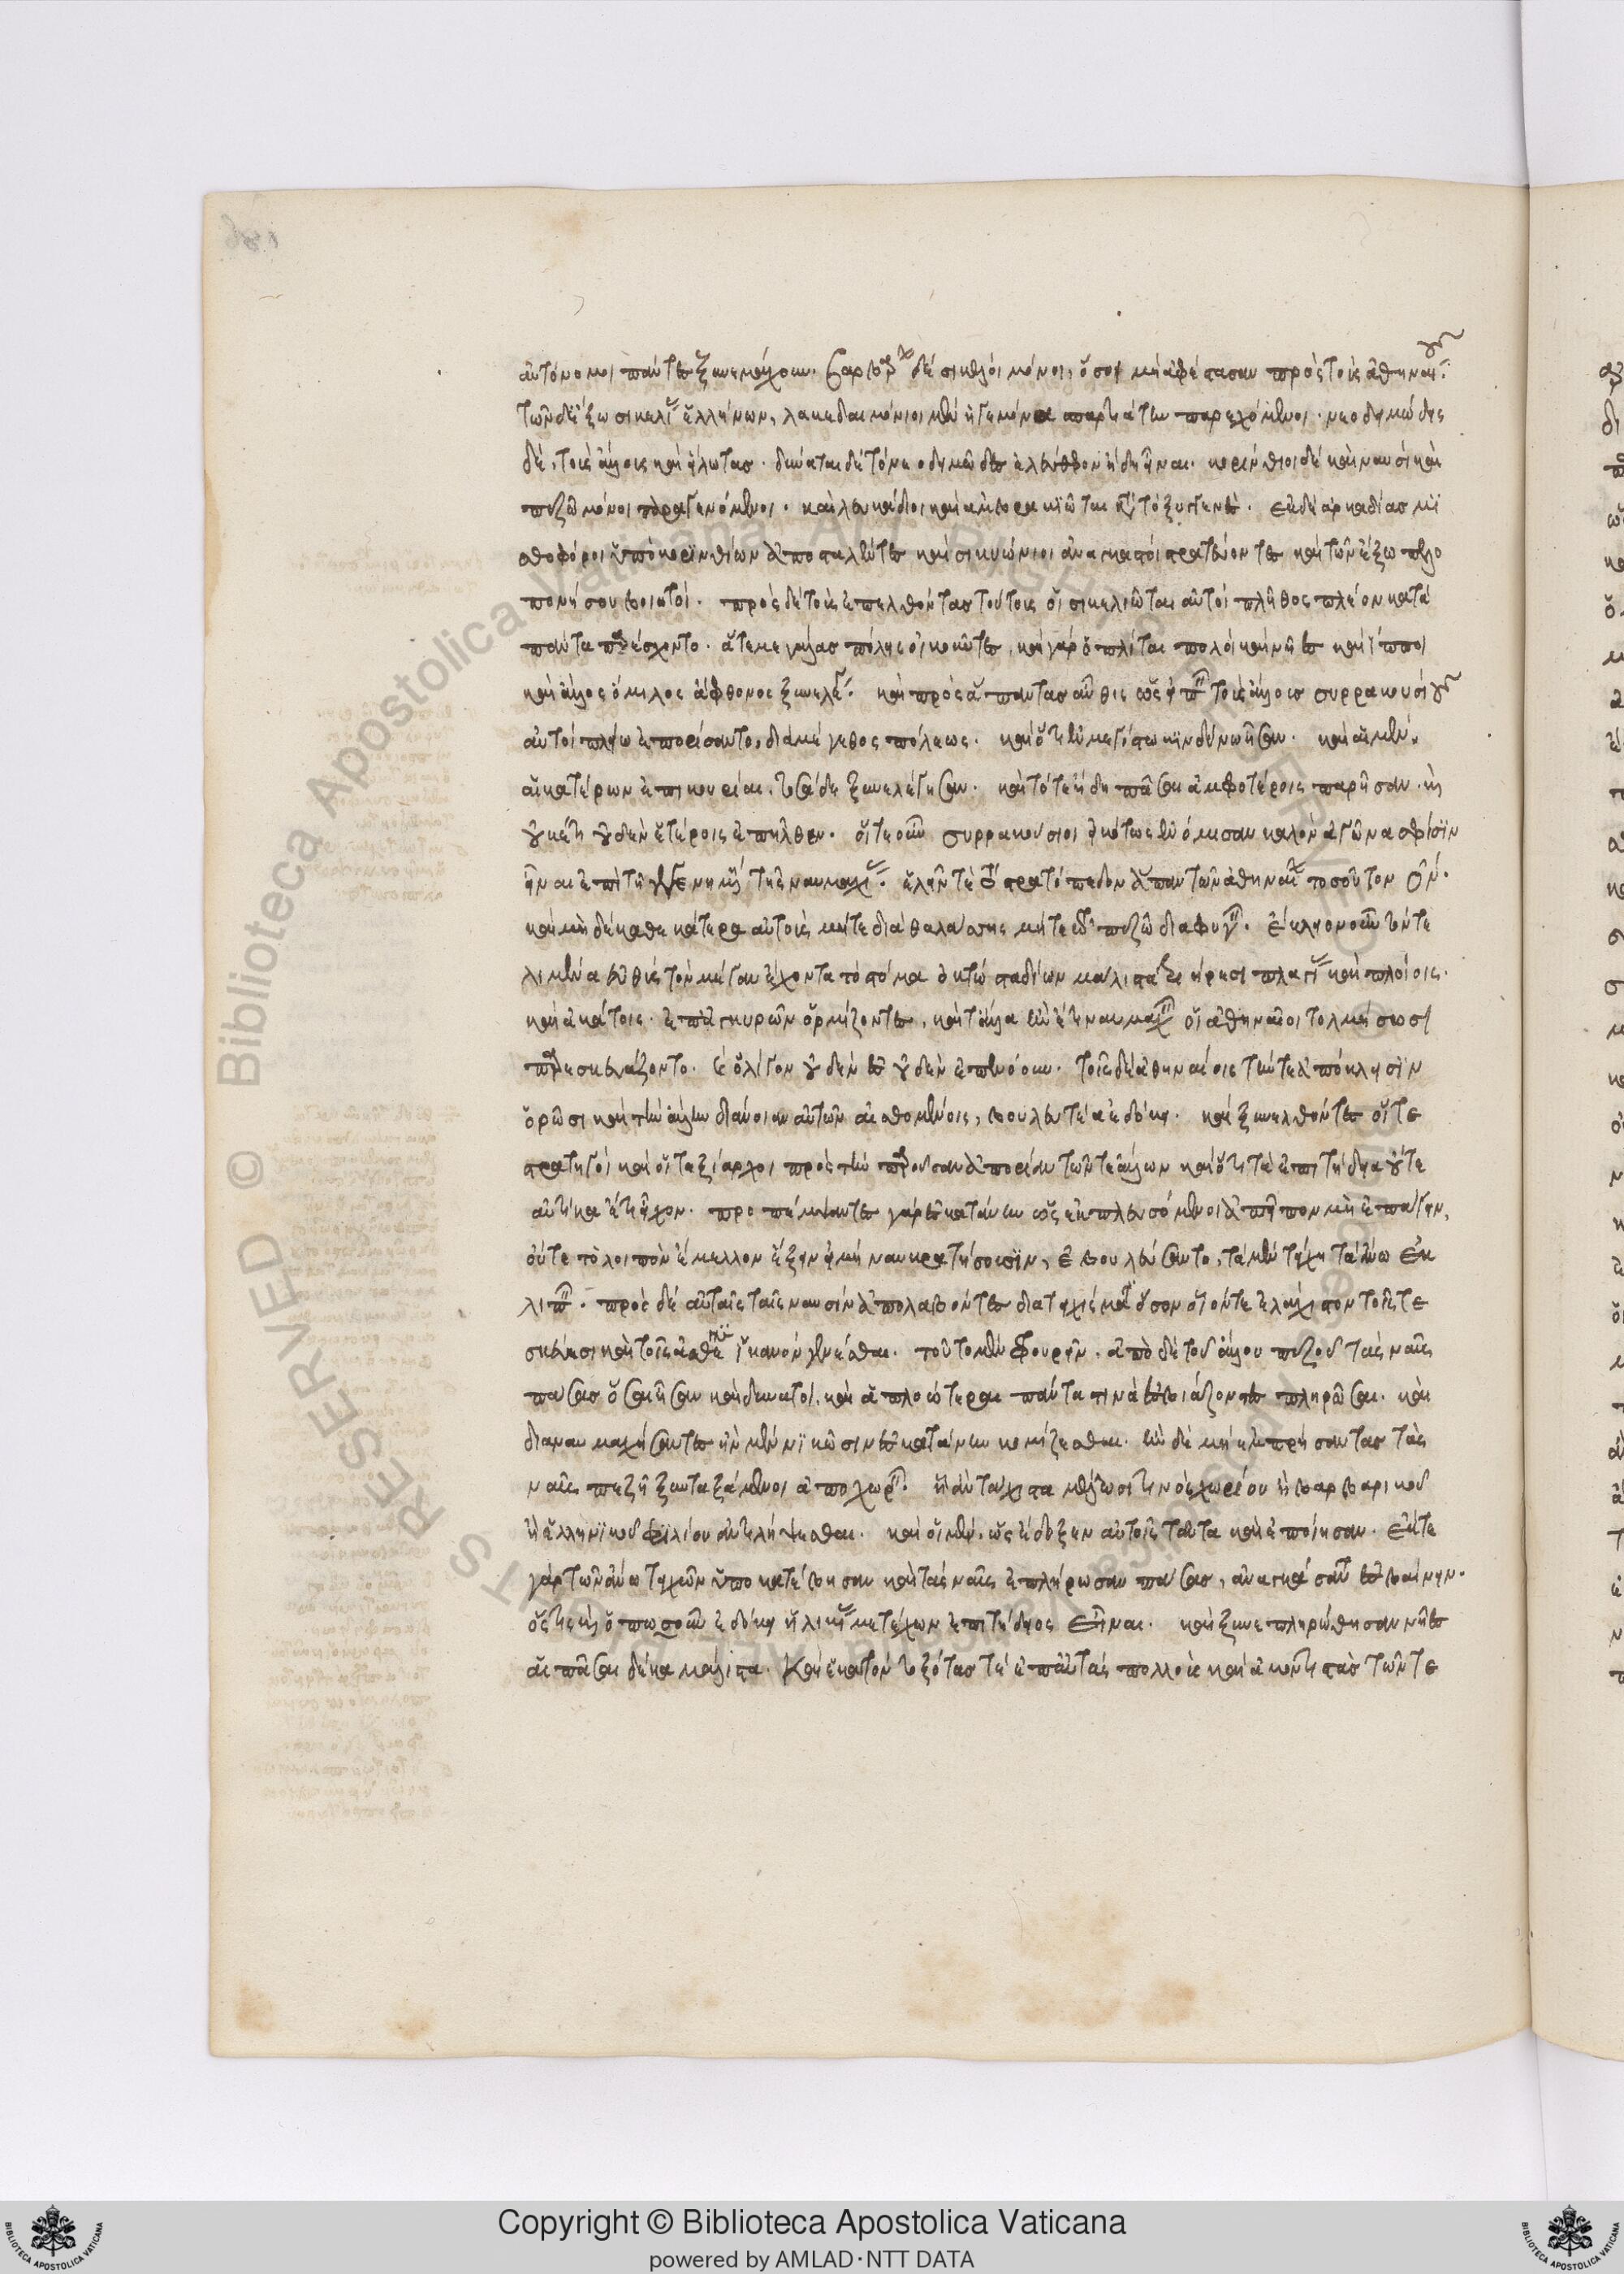 αὐτόνομοι πάντες ξυνεμάχουν. βαρβάρων δὲ σικελοὶ μόνοι, ὅσοι μὴ ἀφέστασαν πρὸς τοὺς ἀθηναίους.
τῶν δὲ ἔξω σικελίας ἑλλήνων, λακεδαιμόνιοι μὲν ἡγεμόνα σπαρτιάτην παρεχόμενοι. νεοδαμώδεις
δὲ, τοὺς ἄλλους καὶ εἵλωτας. δύναται δὲ τὸ νεοδαμῶδες ἐλεύθερον ἤδη εἶναι. κορίνθιοι δὲ καὶ ναυσὶ καὶ
πεζῶ μόνοι παραγενόμενοι. καὶ λευκάδιοι καὶ ἀμβρακιῶται κατὰ τὸ ξυγγενές. ἐκ δὲ ἀρκαδίας μι
σθοφόροι ὑπὸ κορινθίων ἀποσταλέντες καὶ σικυώνιοι ἀναγκαστοὶ στρατεύοντες καὶ τῶν ἔξω πελο
ποννήσου βοιωτοί. πρὸς δὲ τοὺς ἐπελθόντας τούτους οἱ σικελιῶται αὐτοὶ πλῆθος πλέον κατὰ
πάντα παρέσχοντο. ἅτε μεγάλας πόλεις οἰκοῦντες, καὶ γὰρ ὁπλῖται πολλοὶ καὶ νῆες καὶ ἵπποι
καὶ ἄλλος ὅμιλος ἄφθονος ξυνελέγη. καὶ πρὸς ἅπαντας αὖθις ὡς εἰπεῖν τοὺς ἄλλους συρρακούσιοι
αὐτοὶ πλείω ἐπορίσαντο, διὰ μέγεθος πόλεως. καὶ ὅτι ἐν μεγίστω κινδύνω ἦσαν. καὶ αἱ μὲν
ἑκατέρων ἐπικουρίαι, τοσαίδε ξυνελέγησαν. καὶ τότε ἤδη πᾶσαι ἀμφοτέροις παρῆσαν. καὶ
οὐκέτι οὐδὲν ἑτέροις ἐπῆλθεν. οἵ τε οὖν συρρακούσιοι εἰκότως ἐνόμισαν καλὸν ἀγῶνα σφίσιν
εἶναι ἐπὶ τῆ γεγενημένη τῆς ναυμαχίας. ἑλεῖν τὲ τὸ στρατόπεδον ἅπαν τῶν ἀθηναίων τοσοῦτον ὄν.
καὶ μηδὲ καθ' ἑκάτερα αὐτοὺς μήτε διὰ θαλάσσης μήτε τῶ πεζῶ διαφυγεῖν. ἔκληον οὖν τόν τε
λιμένα εὐθὺς τὸν μέγαν ἔχοντα τὸ στόμα ὀκτὼ σταδίων μάλιστα τριήρεσι πλαγίαις καὶ πλοίοις.
καὶ ἀκάτοις. ἐπ' ἀγκυρῶν ὁρμίζοντες, καὶ τἄλλα ἢν ἔτι ναυμαχεῖν οἱ ἀθηναῖοι τολμήσωσι
παρεσκευάζοντο. καὶ ὀλίγον οὐδὲν ἐς οὐδὲν ἐπενόουν. τοῖς δὲ ἀθηναίοις τήν τε ἀπόκλησιν
ὁρῶσι καὶ τὴν ἄλλην διάνοιαν αὐτῶν αἰσθομένοις, βουλευτέα ἐδόκει. καὶ ξυνελθόντες οἵ τε
στρατηγοὶ καὶ οἱ ταξίαρχοι πρὸς τὴν παροῦσαν ἀπορίαν τῶν τε ἄλλων καὶ ὅτι τὰ ἐπιτήδεια οὔτε
αὐτίκα ἔτι εἶχον. προπέμψαντες γὰρ ἐς κατάνην ὡς ἐκπλευσόμενοι ἀπεῖπον μὴ ἐπάγειν,
οὔτε τὸ λοιπὸν ἔμελλον ἕξειν εἰ μὴ ναυκρατήσουσιν, ἐβουλεύσαντο, τὰ μὲν τείχη τὰ ἄνω ἐκ
λιπεῖν. πρὸς δὲ αὐταῖς ταῖς ναυσὶν ἀπολαβόντες διατειχίσματι ὅσον οἷόν τε ἐλάχιστον τοῖς τε
σκεύεσι καὶ τοῖς ἀσθενέσιν ἱκανὸν γενέσθαι. τοῦτο μὲν φρουρεῖν. ἀπὸ δὲ τοῦ ἄλλου πεζοῦ τὰς ναῦς
πάσας ὅσαι ἦσαν καὶ δυναταί, καὶ ἀπλοώτεραι πάντα τινὰ ἐσβιβάζοντες πληρῶσαι. καὶ
διαναυμαχήσαντες ἢν μὲν νικῶσιν ἐς κατάνην κομίζεσθαι. ἢν δὲ μὴ ἐμπρήσαντας τὰς
ναῦς πεζῆ ξυνταξάμενοι ἀποχωρεῖν. ἧ ἂν τάχιστα μέλλωσί τινος χωρίου ἢ βαρβαρικοῦ
ἢ ἑλληνικοῦ φιλίου ἀντιλήψεσθαι. καὶ οἱ μὲν, ὡς ἔδοξεν αὐτοῖς ταῦτα καὶ ἐποίησαν. ἔκ τε
γὰρ τῶν ἄνω τειχῶν ὑποκατέβησαν καὶ τὰς ναῦς ἐπλήρωσαν πάσας, ἀναγκάσαντες ἐσβαίνειν.
ὅστις καὶ ὁπωσοῦν ἐδόκει ἡλικίας μετέχων ἐπιτήδειος εἶναι. καὶ ξυνεπληρώθησαν νῆες
αἱ πᾶσαι δέκα μάλιστα. καὶ ἑκατὸν τοξότας τὲ ἐπ' αὐτὰς πολλοὺς καὶ ἀκοντιστὰς τῶν τε
Copyright © Biblioteca Apostolica Vaticana
powered by AMLAD·NTT DATA